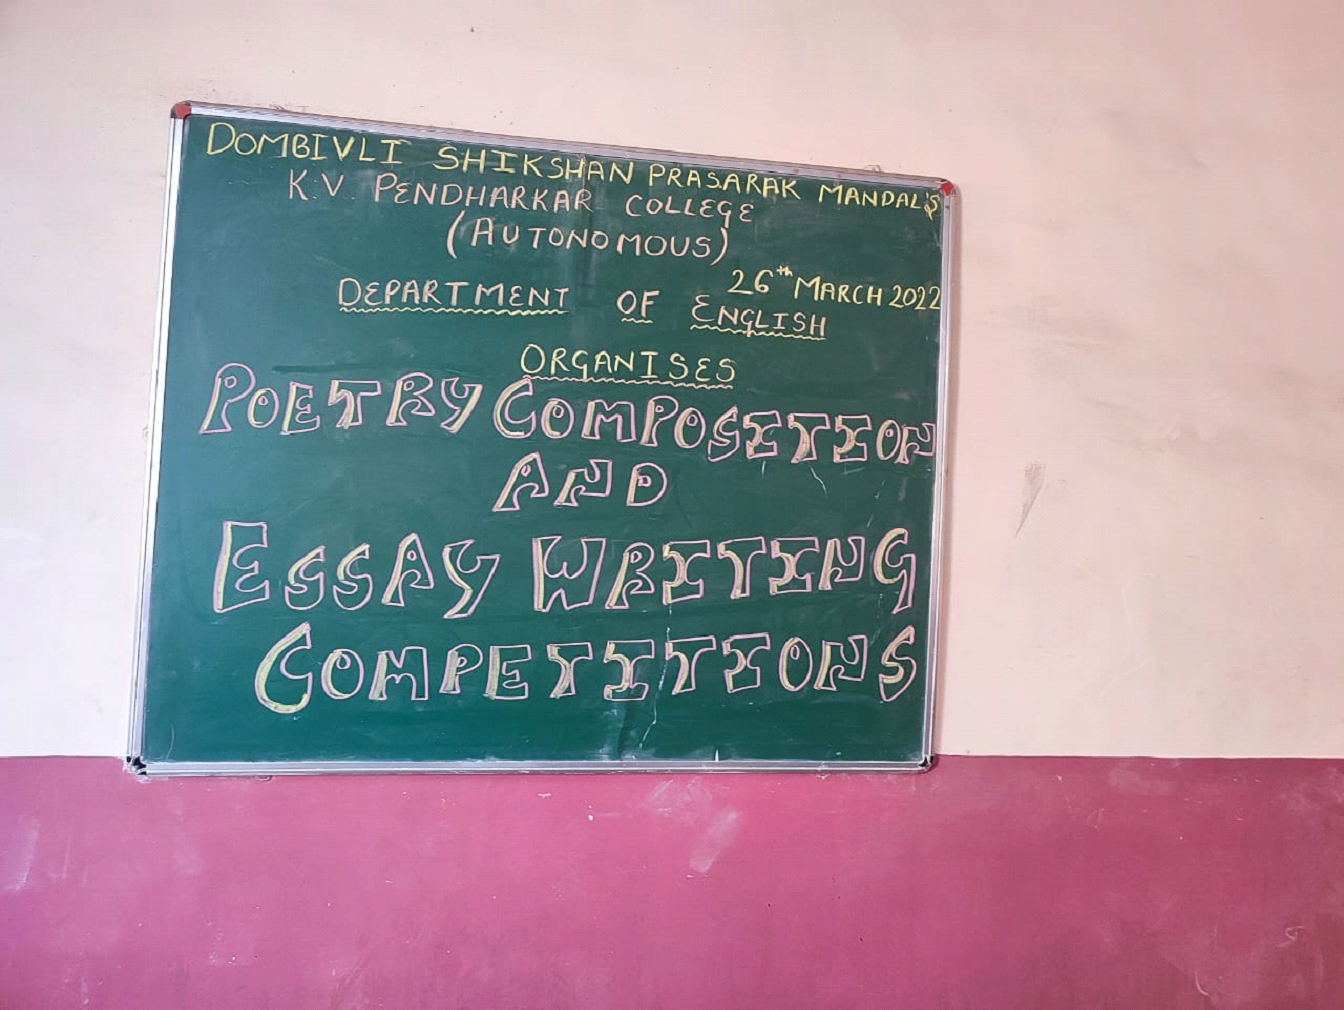 DOMBIVLI SHIKSHAN PRASARAK MANDAL'S
K.V. PENDHARKAR COLLEGE
(AUTONOMOUS)
26th MARCH 2022
DEPARTMENT OF ENGLISH
ORGANISES
POETRY COMPOSITION
AND
ESSAY WRITING
COMPETITIONS